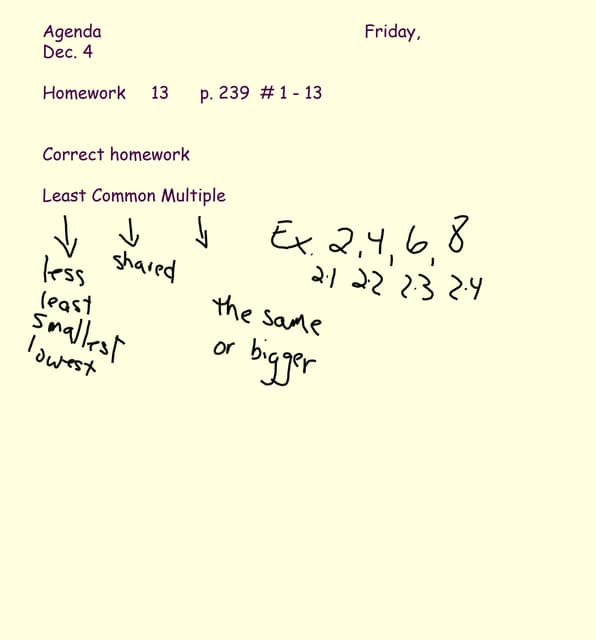 Agenda Friday,
Dec. 4
Homework 13 p. 239 # 1 - 13
Correct homework
Least Common Multiple
↓ ↓ ↓ Ex. 2, 4, 6, 8
less shared 2·1 2·2 2·3 2·4
least the same
smallest or bigger
lowest